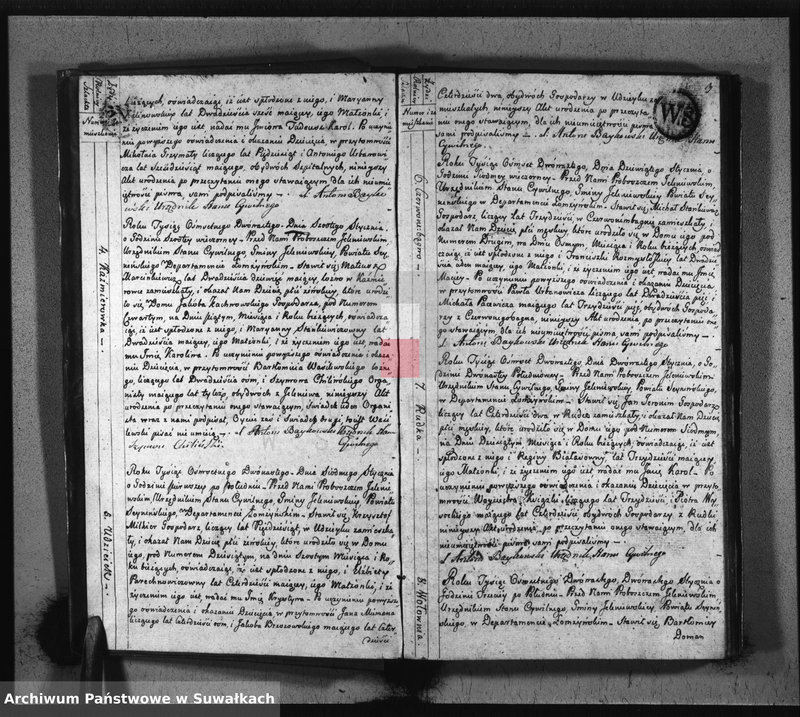 bieżących, oświadczając, iż jest spłodzone z niego, i Maryanny
lat Dwadzieścia sześć maiącey, iego Małżonki, i
iż życzeniem iego jest nadać mu Imiona Tadeusz Karol. Po uczynie
niu powyższego oświadczenia i okazaniu Dziecięcia, w przytomności
Mikołaia Trzymały liczącego lat Pięćdziesiąt i Antoniego Urbanowi
cza lat Sześćdziesiąt maiącego, obydwóch Szpitalnych, ninieyszy
Akt urodzenia po przeczytaniu onego stawaiącym, dla ich nieumie
iętności pisma, sam podpisaliśmy. — X. Antoni Bayko
wski Urzędnik Stanu Cywilnego
Roku Tysiąc Osmsetnego Dwónastego, Dnia Szóstego Stycznia,
o Godzinie Szóstey wieczorney. Przed Nami Proboszczem Jeleniewskim,
Urzędnikiem Stanu Cywilnego, Gminy Jeleniewskiey, Powiatu Sey
neńskiego Departamencie Łomżyńskim. Stawił się Mateusz
Marcinkiewicz, lat Dwadzieścia Dziewięć maiący, w Kazimi
rowce zamieszkały, i okazał Nam Dziecię płci żeńskiey, które urodzi
ło się w Domu Jakuba Kachnowskiego Gospodarza, pod Numerem
Czwartym, na Dniu piątym, Miesiąca i Roku bieżących, oświadcza
iąc, iż jest spłodzone z niego, i Maryanny Stankiewiczowny lat
Dwadzieścia maiącey, iego Małżonki, i iż życzeniem iego jest nadać
mu Imię Karolina. Po uczynieniu powyższego oświadczenia i okaza
niu Dziecięcia, w przytomności Bartłomieia Wasilewskiego
liczącego lat Dwadzieścia ośm, i Szymona Chilińskiego Orga
nisty maiącego lat tyleż obydwóch z Jeleniewa, ninieyszy Akt
urodzenia po przeczytaniu onego stawaiącym, Świadek ieden Organi
sta wraz z nami podpisał, Oyciec zaś i Świadek drugi, Józef Wasi
lewski pisać nie umieią. — X. Antoni Baykowski Urzędnik Stanu
Szymon Chiliński Cywilnego
Roku Tysiąc Osmsetnego Dwónastego, Dnia Siódmego Stycznia
o Godzinie pierwszey po południu. Przed Nami Proboszczem Jeleniew
skim, Urzędnikiem Stanu Cywilnego, Gminy Jeleniewskiey Powiatu
Seyneńskiego, w Departamencie Łomżyńskim. Stawił się Krzysztof
Milkier Gospodarz, liczący lat Pięćdziesiąt, w Udzieyku zamieszka
ły, i okazał Nam Dziecię płci żeńskiey, które urodziło się w Domu
iego, pod Numerem Dziesiątym, na dniu Szóstym Miesiąca i Ro
ku bieżących, oświadczaiąc, iż jest spłodzone z niego, i Elżbiety
lat Czterdzieści maiącey, iego Małżonki, i iż
życzeniem iego jest, nadać mu Imię Krystyna. Po uczynieniu powyższe
go oświadczenia i okazaniu Dziecięcia, w przytomności Jana
liczącego lat Czterdzieści ośm, i Jakuba Brzozowskiego maiącego lat Czter
dzieści
4. Kaźmierówka —.
5. Udzieiek. —
Czterdzieści dwa obydwóch Gospodarzy w Udzieyku za
mieszkałych, ninieyszy Akt urodzenia po przeczyta
niu onego stawaiącym, dla ich nieumieiętności pisma
sami podpisaliśmy. — X. Antoni Baykowski Urzędnik Stanu
Cywilnego.
3
Roku Tysiąc Osmset Dwónastego, Dnia Dziewiątego Stycznia, o
Godzinie Siódmey wieczorney. Przed Nami Proboszczem Jeleniewskim,
Urzędnikiem Stanu Cywilnego, Gminy Jeleniewskiey Powiatu Sey
neńskiego w Departamencie Łomżyńskim. Stawił się Michał Stankiewicz
Gospodarz liczący lat Trzydzieści, w Czerwonembagnie zamieszkały, i
okazał Nam Dziecię płci męskiey, które urodziło się w Domu iego pod
Numerem Drugim, na Dniu Osmym, Miesiąca i Roku bieżących, oświad
czaiąc iż jest spłodzone z niego i Franciszki lat Dwadzie
ścia ieden maiącey, iego Małżonki, i iż życzeniem iego jest nadać mu Imię
Maciey. Po uczynieniu powyższego oświadczenia i okazaniu Dziecięcia,
w przytomności Pawła Urbanowicza liczącego lat Dwadzieścia pięć i
Michała Pawicza maiącego lat Trzydzieści pięć, obydwóch Gospoda
rzy z Czerwonegobagna, ninieyszy Akt urodzenia po przeczytaniu one
go stawaiącym, dla ich nieumieiętności pisma sam podpisaliśmy. —
X. Antoni Baykowski Urzędnik Stanu Cywilnego
Roku Tysiąc Osmset Dwónastego, Dnia Dwónastego Stycznia, o Go
dzinie Dwónastey Południowey. Przed Nami Proboszczem Jeleniewskim,
Urzędnikiem Stanu Cywilnego, Gminy Jeleniewskiey, Powiatu Seyneńskiego,
w Departamencie Łomżyńskim. Stawił się Jan Gospodarz
liczący lat Czterdzieści dwa w Rudce zamieszkały, i okazał Nam Dziecię
płci męskiey, które urodziło się w Domu iego pod Numerem Siódmym,
na Dniu Dziesiątym Miesiąca i Roku bieżących, oświadczaiąc, iż jest
spłodzone z niego i Reginy Białasówny, lat Trzydzieści maiącey,
iego Małżonki, i iż życzeniem iego jest nadać mu Imię Karol. Po
uczynieniu powyższego oświadczenia i okazaniu Dziecięcia w przyto
mności Woyciecha liczącego lat Trzydzieści i Piotra Wy
sockiego maiącego lat Czterdzieści obydwóch Gospodarzy z Rudki
ninieyszy Akt urodzenia po przeczytaniu onego stawaiącym, dla ich
nieumieiętności pisma sami podpisaliśmy. —
X. Antoni Baykowski Urzędnik Stanu Cywilnego
Roku Tysiąc Osmsetnego Dwónastego, Dwónastego Stycznia o
Godzinie Trzeciey po Południu. Przed Nami Proboszczem Jeleniewskim,
Urzędnikiem Stanu Cywilnego, Gminy Jeleniewskiey Powiatu Seyneń
skiego, w Departamencie Łomżyńskim. Stawił się Bartłomiey
Doman
6. Czerwonebagno. —
7. Rudka —
8. Wołownia.
Archiwum Państwowe w Suwałkach